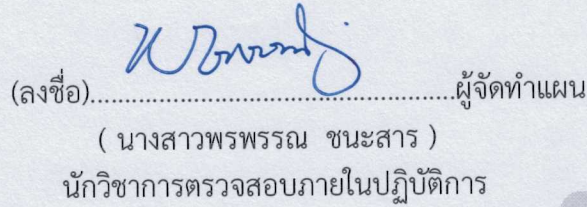 (ลงชื่อ)..................................................ผู้จัดทำแผน
( นางสาวพรพรรณ ชนะสาร )
นักวิชาการตรวจสอบภายในปฏิบัติการ